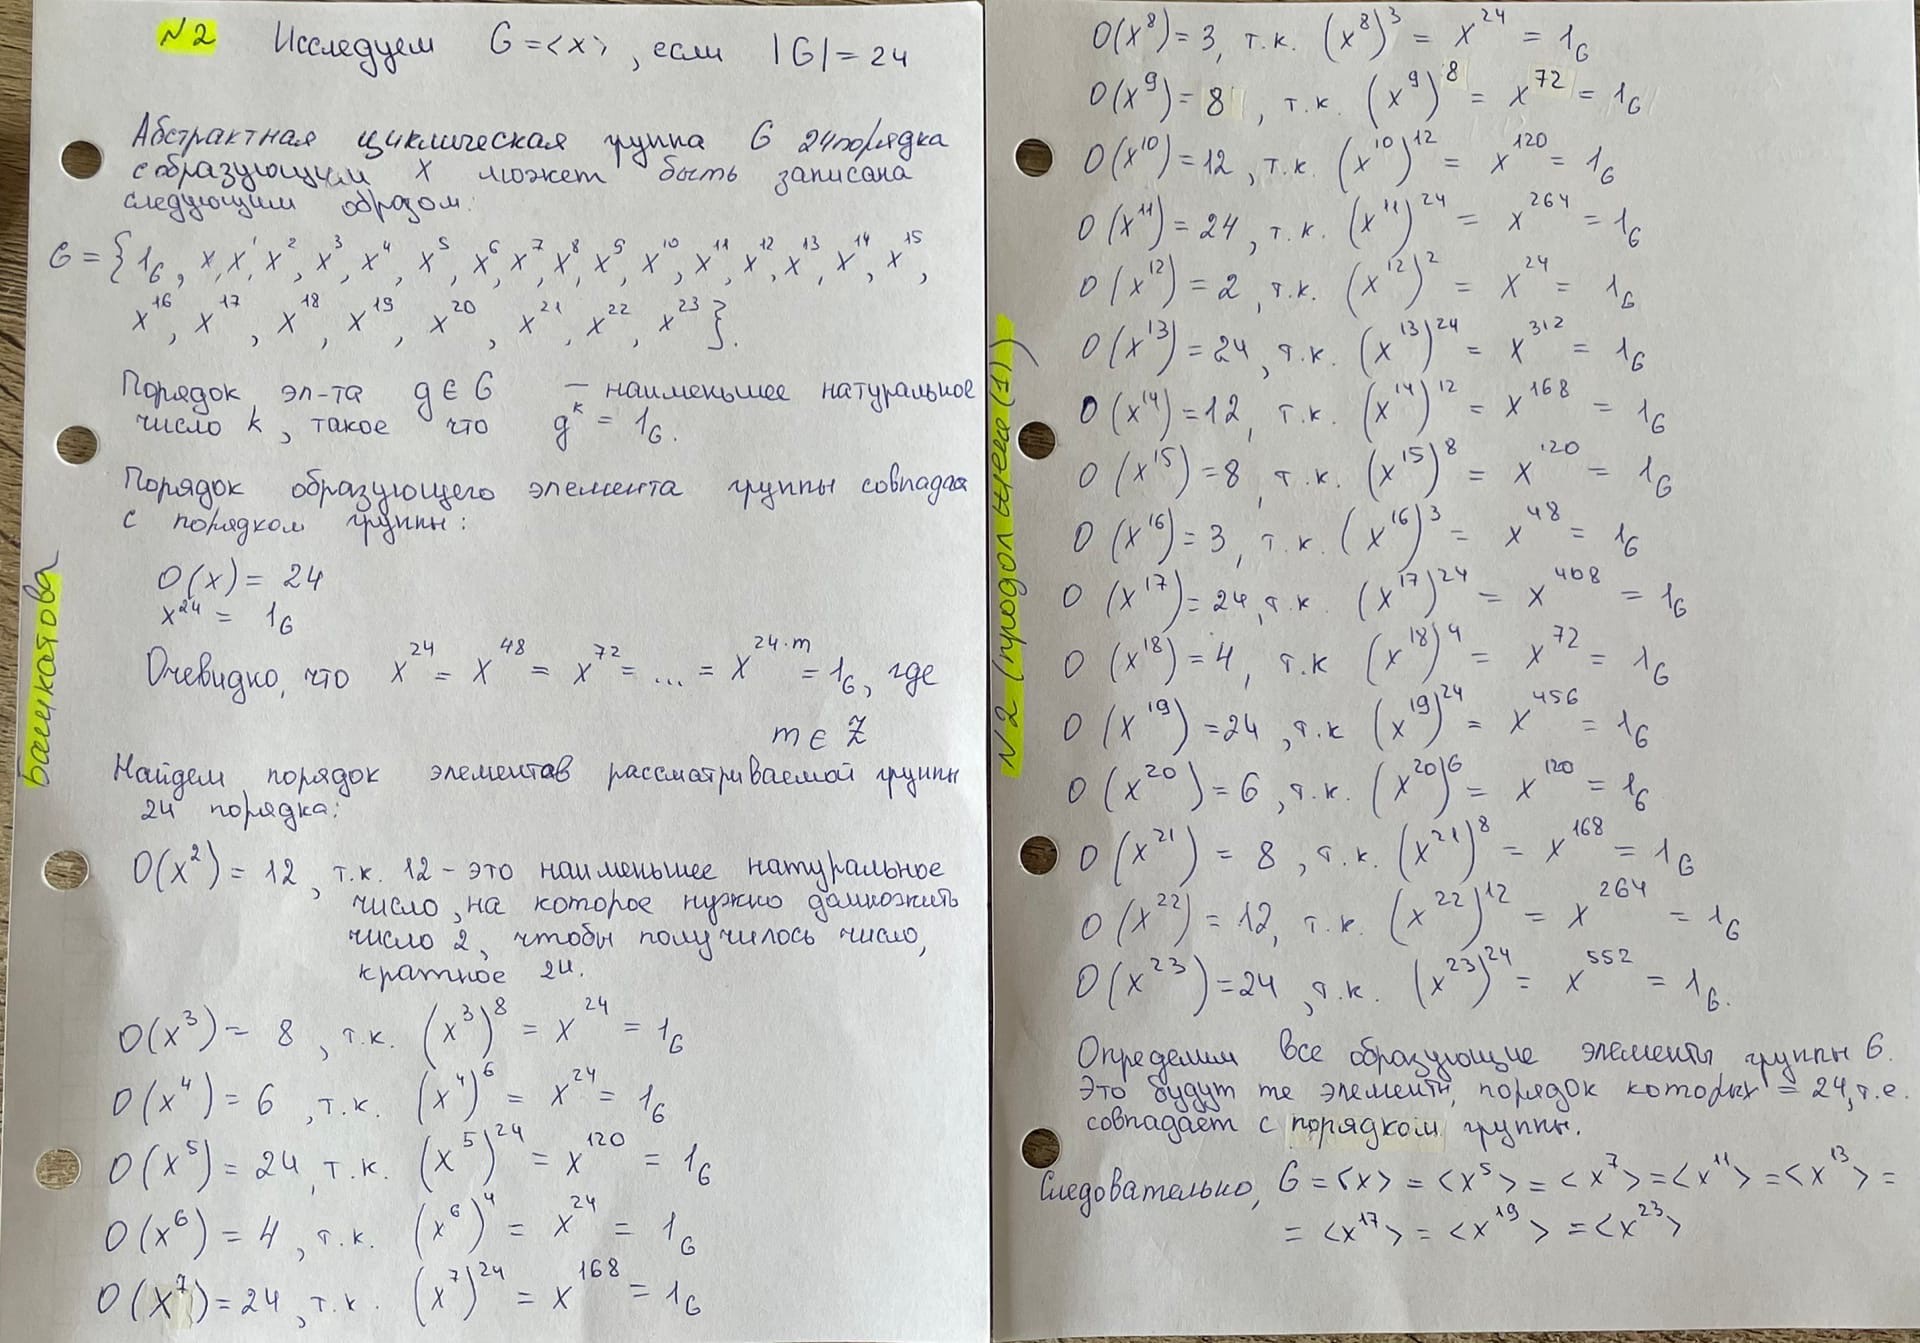 N2 Исследуем G = <x>, если |G| = 24
Абстрактная циклическая группа G 24 порядка
с образующим x может быть записана
следующим образом:
G = {1_G, x, x^1, x^2, x^3, x^4, x^5, x^6, x^7, x^8, x^9, x^10, x^11, x^12, x^13, x^14, x^15,
x^16, x^17, x^18, x^19, x^20, x^21, x^22, x^23}.
Порядок эл-та g ∈ G — наименьшее натуральное
число k, такое что g^k = 1_G.
Порядок образующего элемента группы совпадая
с порядком группы:
O(x) = 24
x^24 = 1_G
Очевидно, что x^24 = x^48 = x^72 = ... = x^(24·m) = 1_G, где
m ∈ Z
Найдем порядок элементов рассматриваемой группы
24 порядка:
O(x^2) = 12, т.к. 12 - это наименьшее натуральное
число, на которое нужно домножить
число 2, чтобы получилось число,
кратное 24.
O(x^3) = 8, т.к. (x^3)^8 = x^24 = 1_G
O(x^4) = 6, т.к. (x^4)^6 = x^24 = 1_G
O(x^5) = 24, т.к. (x^5)^24 = x^120 = 1_G
O(x^6) = 4, т.к. (x^6)^4 = x^24 = 1_G
O(x^7) = 24, т.к. (x^7)^24 = x^168 = 1_G
Башкатова
O(x^8) = 3, т.к. (x^8)^3 = x^24 = 1_G
O(x^9) = 8, т.к. (x^9)^8 = x^72 = 1_G
O(x^10) = 12, т.к. (x^10)^12 = x^120 = 1_G
O(x^11) = 24, т.к. (x^11)^24 = x^264 = 1_G
O(x^12) = 2, т.к. (x^12)^2 = x^24 = 1_G
O(x^13) = 24, т.к. (x^13)^24 = x^312 = 1_G
O(x^14) = 12, т.к. (x^14)^12 = x^168 = 1_G
O(x^15) = 8, т.к. (x^15)^8 = x^120 = 1_G
O(x^16) = 3, т.к. (x^16)^3 = x^48 = 1_G
O(x^17) = 24, т.к. (x^17)^24 = x^408 = 1_G
O(x^18) = 4, т.к (x^18)^4 = x^72 = 1_G
O(x^19) = 24, т.к (x^19)^24 = x^456 = 1_G
O(x^20) = 6, т.к. (x^20)^6 = x^120 = 1_G
O(x^21) = 8, т.к. (x^21)^8 = x^168 = 1_G
O(x^22) = 12, т.к. (x^22)^12 = x^264 = 1_G
O(x^23) = 24, т.к. (x^23)^24 = x^552 = 1_G.
Определим все образующие элементы группы G.
Это будут те элементы, порядок которых = 24, т.е.
совпадает с порядком группы.
Следовательно, G = <x> = <x^5> = <x^7> = <x^11> = <x^13> =
= <x^17> = <x^19> = <x^23>
N2 (продолжение (1))